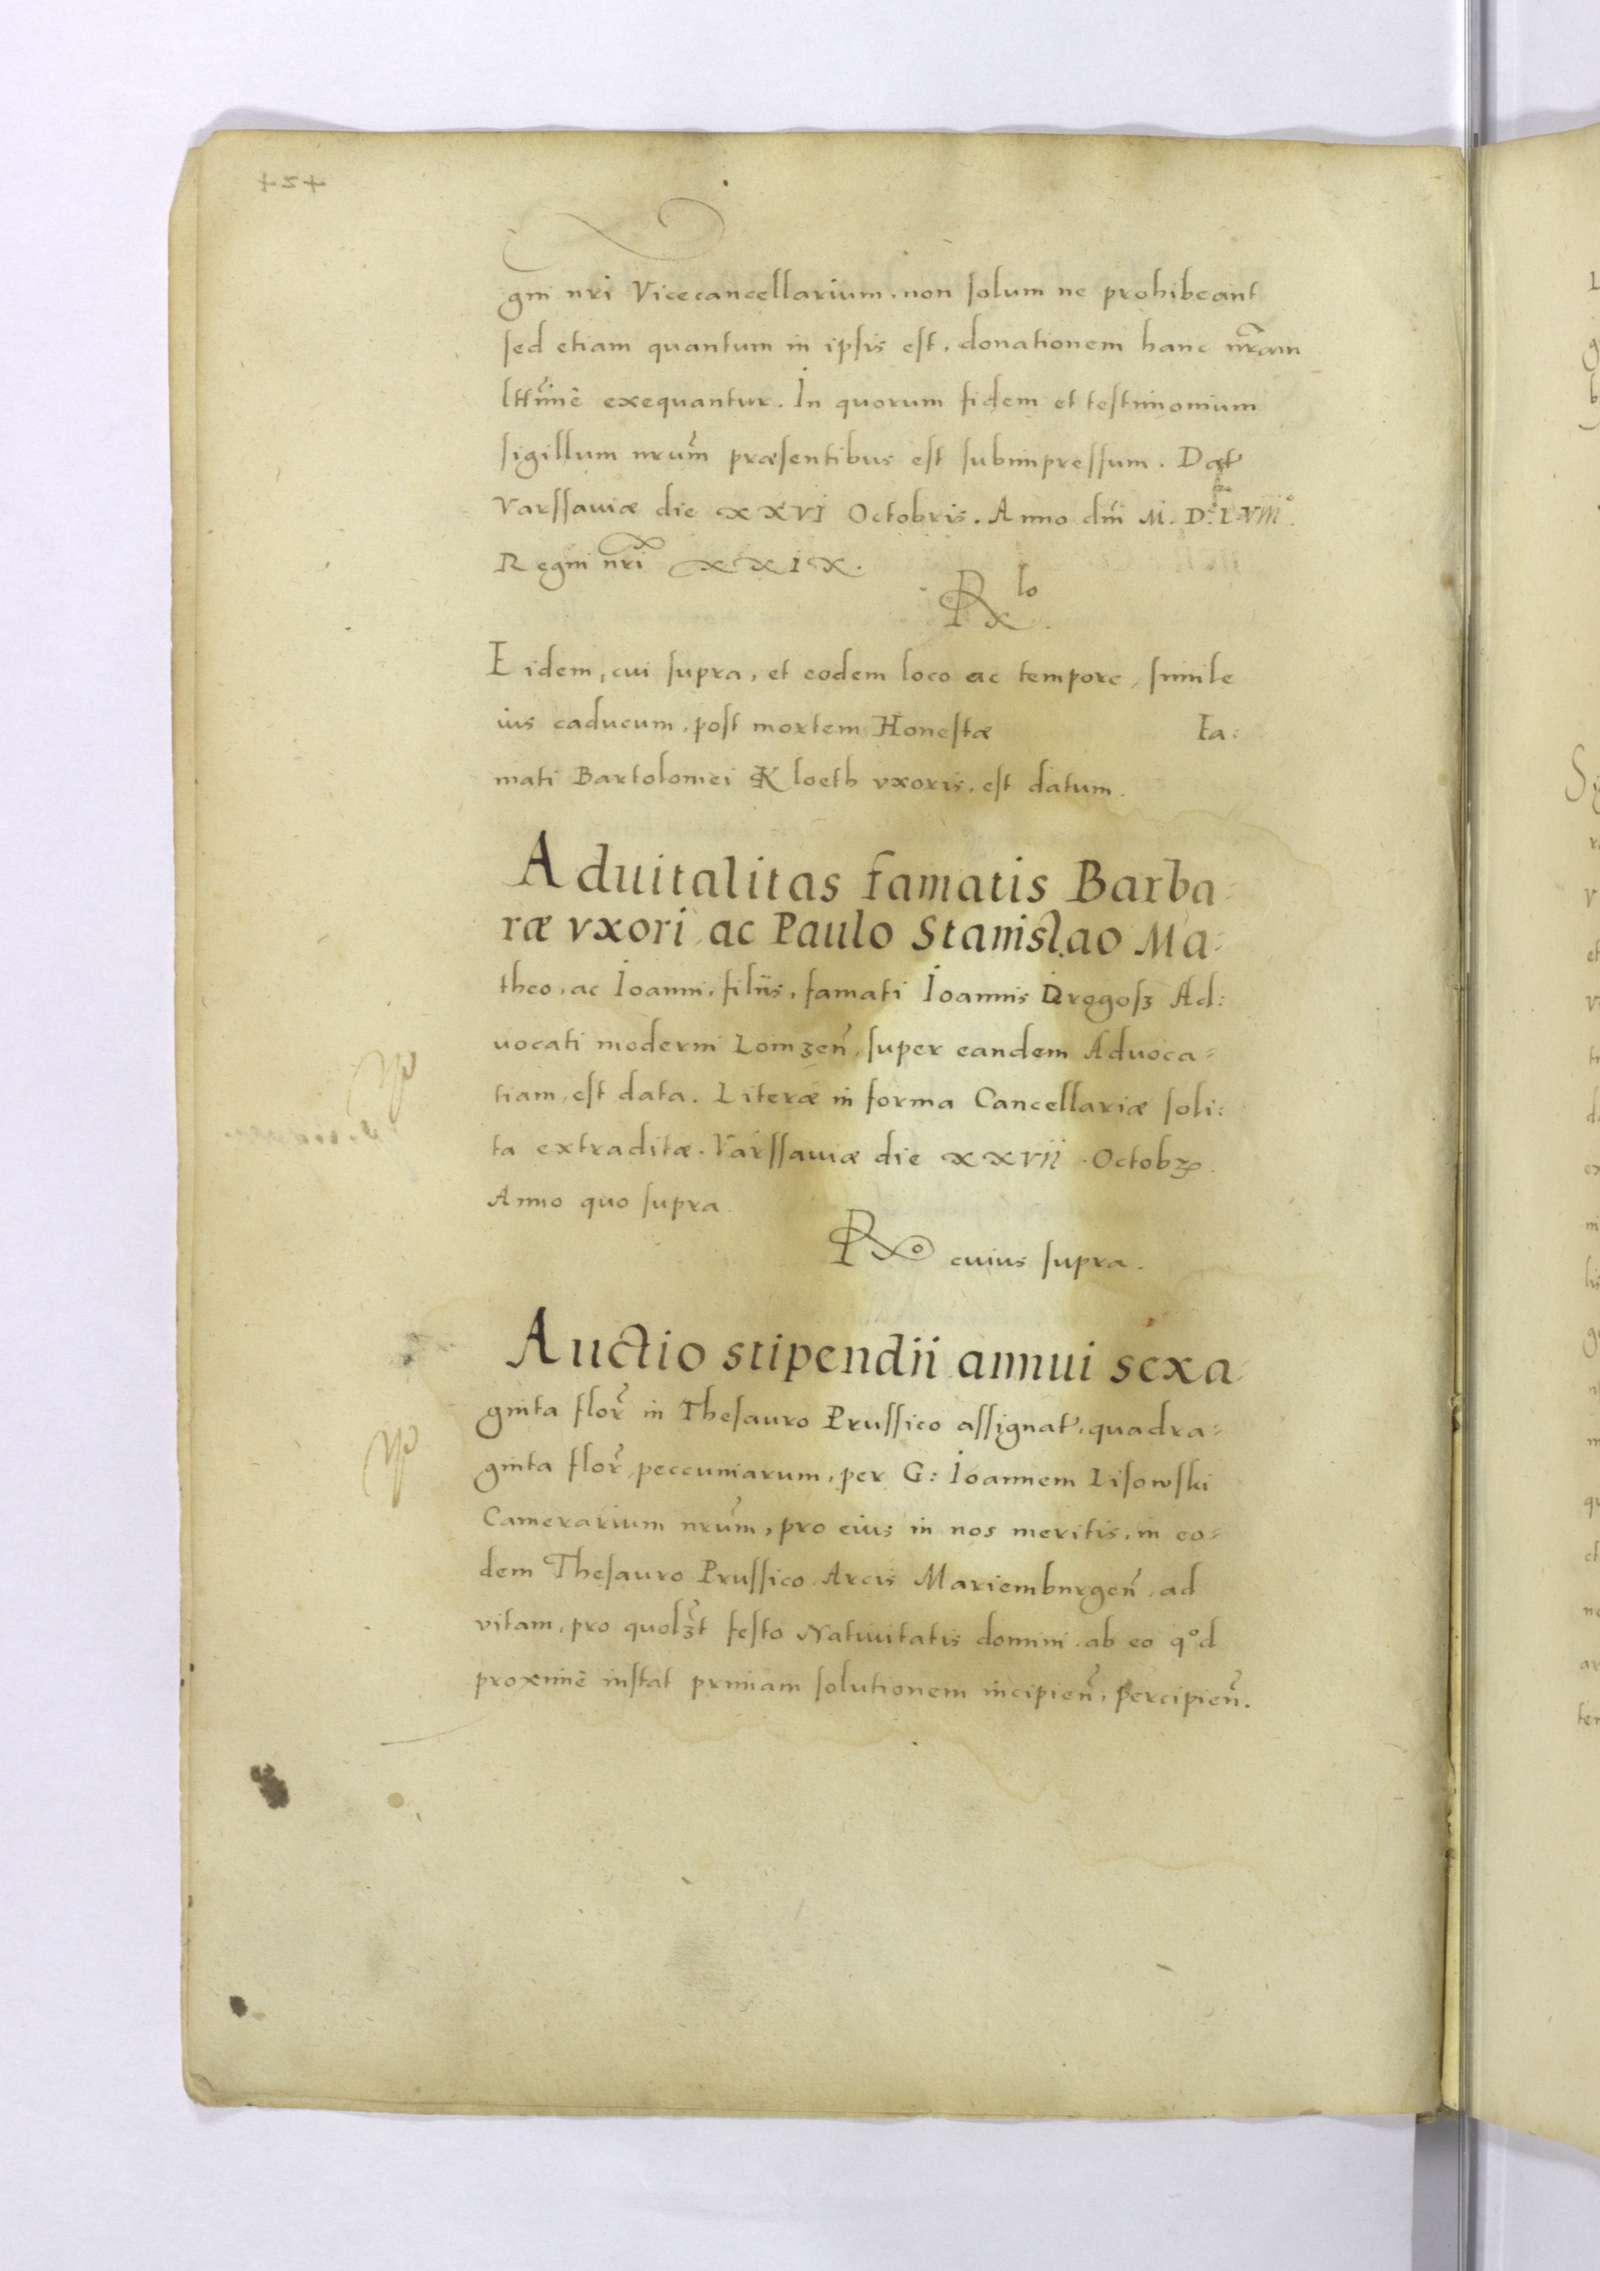 424
gni nri Vicecancellarium. non solum ne prohibeant
sed etiam quantum in ipsis est, donationem hanc nrãm
exequantur. In quorum fidem et testimonium
sigillum nrum̃ præsentibus est subimpressum. Dat̃
Varssauiæ die XXVI Octobris. Anno dni M. D. L VIII°.
Regni nri XXIX.
Rlo.
Eidem, cui supra, et eodem loco ac tempore, simile
ius caducum, post mortem Honestæ Fa:
mati Bartolomei Kloeth vxoris, est datum.
Aduitalitas famatis Barba-
ræ vxori ac Paulo Stanislao Ma-
theo, ac Ioanni, filiis, famati Ioannis Drogosz Ad:
uocati moderni Lomzen̄, super eandem Aduoca-
tiam, est data. Literæ in forma Cancellariæ soli:
ta extraditæ. Varssauiæ die XXVII Octobꝝ.
Anno quo supra.
Ro cuius supra.
Auctio stipendii annui sexa-
ginta flor̃ in Thesauro Prussico assignat̃, quadra-
ginta flor̃ peccuniarum, per G: Ioannem Lisowski
Camerarium nrum̃, pro eius in nos meritis, in eo-
dem Thesauro Prussico Arcis Mariemburgen̄ ad
vitam, pro quolꝫt festo Natiuitatis domini ab eo qod
proximè instat primam solutionem incipien̄, percipien̄.